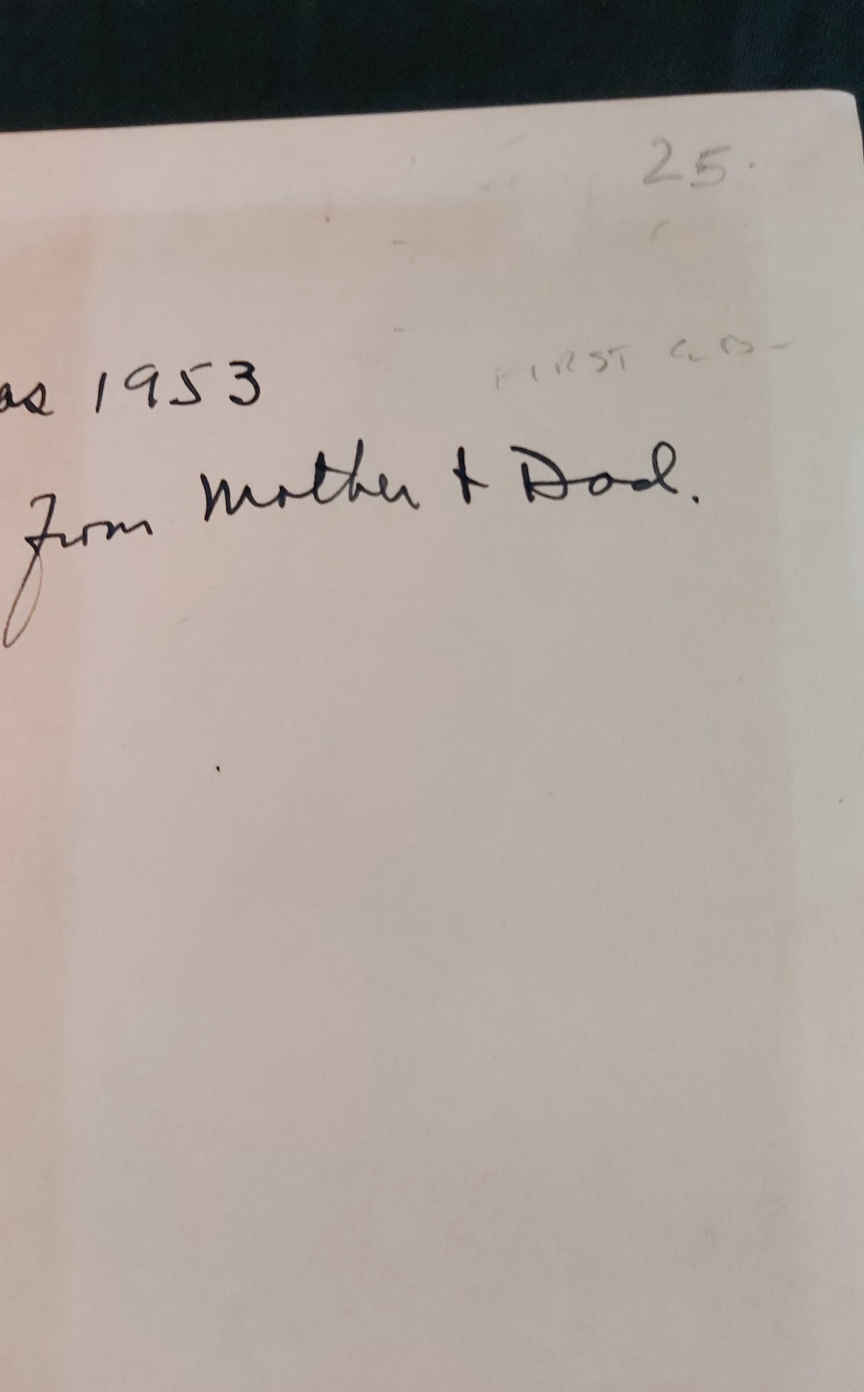 25.
FIRST
as 1953
from Mother & Dad.